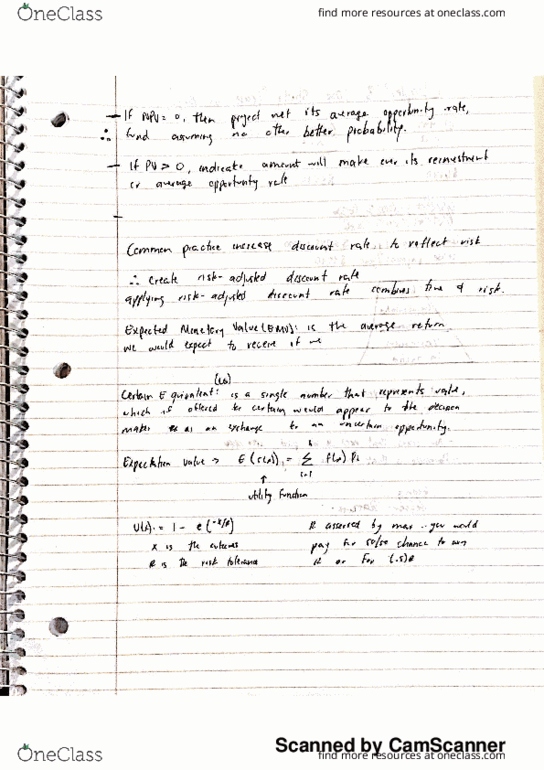 OneClass
find more resources at oneclass.com
- If NPV = 0, then project met its average opportunity rate,
∴ fund assuming no other better probability.
- If PV > 0, indicate amount will make over its reinvestment
or average opportunity rate
-
Common practice increase discount rate to reflect risk
∴ create risk-adjusted discount rate
applying risk-adjusted discount rate combines time & risk.
Expected Monetary Value (EMV): is the average return
we would expect to receive if we
Certain Equivalent: is a single number that represents value,
which if offered for certain would appear to the decision
maker as an exchange to an uncertain opportunity.
Expectation value => E = Σ Pi
i=1
↑
utility function
U(x) = 1 - e(-x/R)
R assessed by max you would
x is the
pay for 50/50 chance to
R is the risk tolerance
R or for (.5)R
Scanned by CamScanner
OneClass
find more resources at oneclass.com